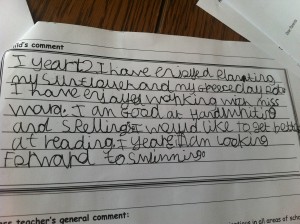 ild's comment
I year 2 I have enjoyed planting
my sunflower and my
I have enjoyed working with miss
ward. I am Good at Handwriting
and spellings. I would like to get bett
at reading. I year I am Looking
Forward to swimming.
ss teacher's general comment:
in all areas of scho